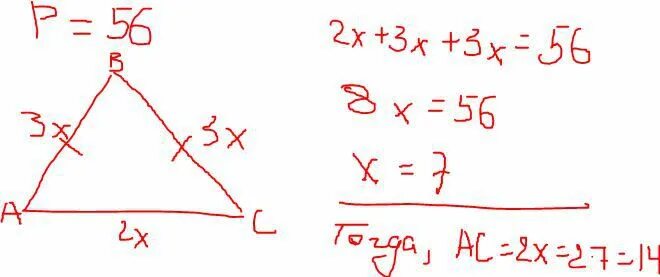 P = 56
B
3x 3x
A C
2x
2x + 3x + 3x = 56
8x = 56
x = 7
Тогда, AC = 2x = 2·7 = 14